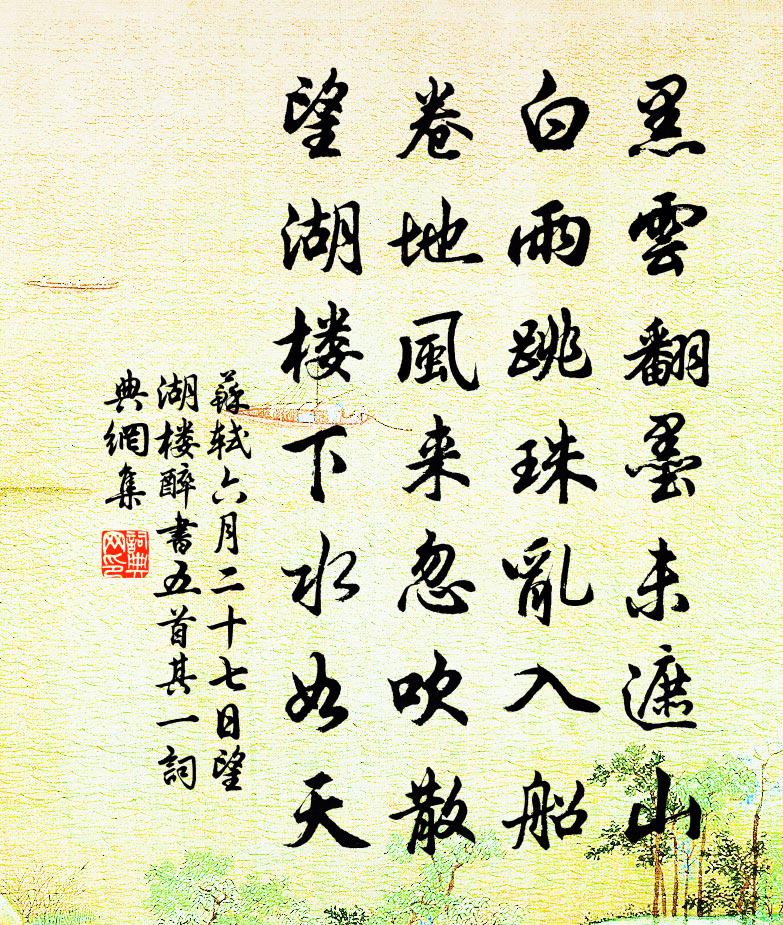 黑雲翻墨未遮山
白雨跳珠亂入船
卷地風来忽吹散
望湖楼下水如天
蘇軾六月二十七日望
湖楼醉書五首其一詞
典網集
詞典
网印